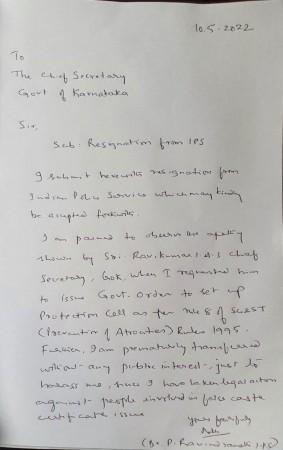 10.5.2022
To
The Chief Secretary
Govt of Karnataka
Sir,
Sub: Resignation from IPS
I submit herewith resignation from
Indian Police Service which may kindly
be accepted forthwith.
I am pained to observe the apathy
shown by Sri. Ravikumar I.A.S Chief
Secretary, GoK, when I requested him
to issue Govt. Order to set up
Protection Cell as per rule 8 of SC&ST
(Prevention of Atrocities) Rules 1995.
Further, I am prematurely transferred
without any public interest, just to
harass me, since I have taken legal action
against people involved in false caste
certificate issue
Yours faithfully
(Dr. P. Ravindranath IPS)